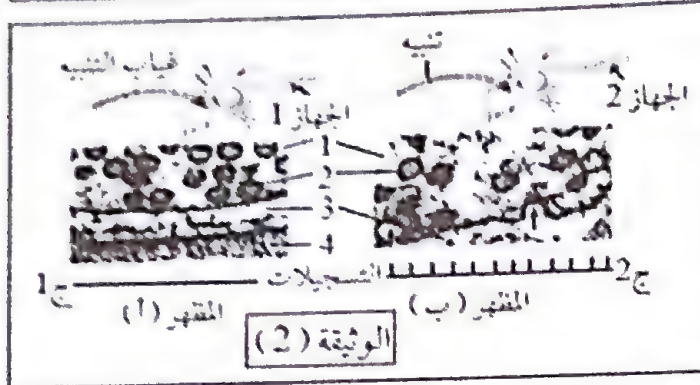 غياب التنبيه
تنبيه
الجهاز 1
الجهاز 2
1
2
3
4
ج1
التسجيلات
ج2
المظهر (أ)
المظهر (ب)
الوثيقة (2)